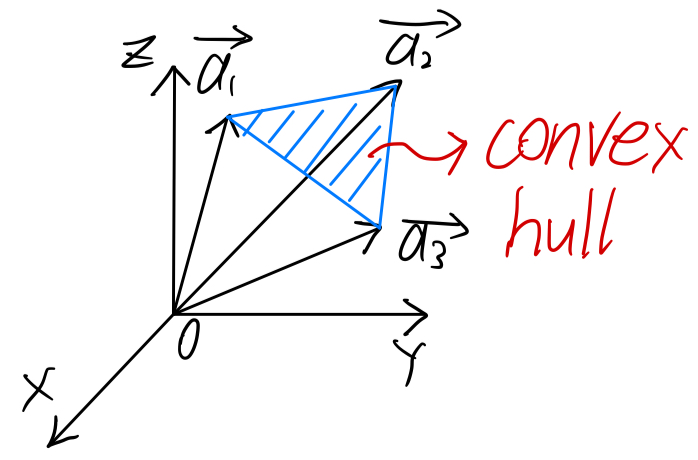 Z
a₁
a₂
convex
hull
a₃
O
Y
X